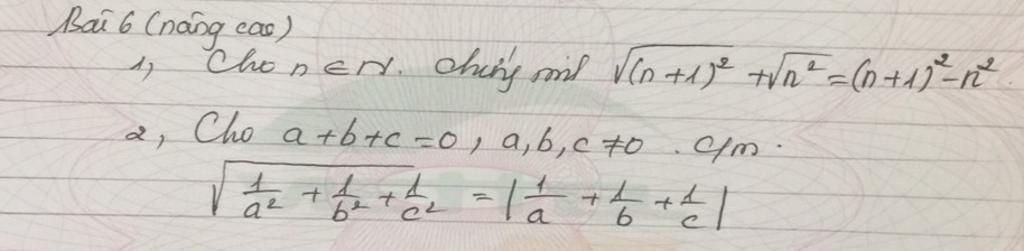 Bài 6 (nâng cao)
1, Cho n ∈ N. Chứng minh √(n+1)² + √n² = (n+1)² - n²
2, Cho a+b+c=0, a,b,c ≠0. C/m.
√(1/a² + 1/b² + 1/c²) = |1/a + 1/b + 1/c|